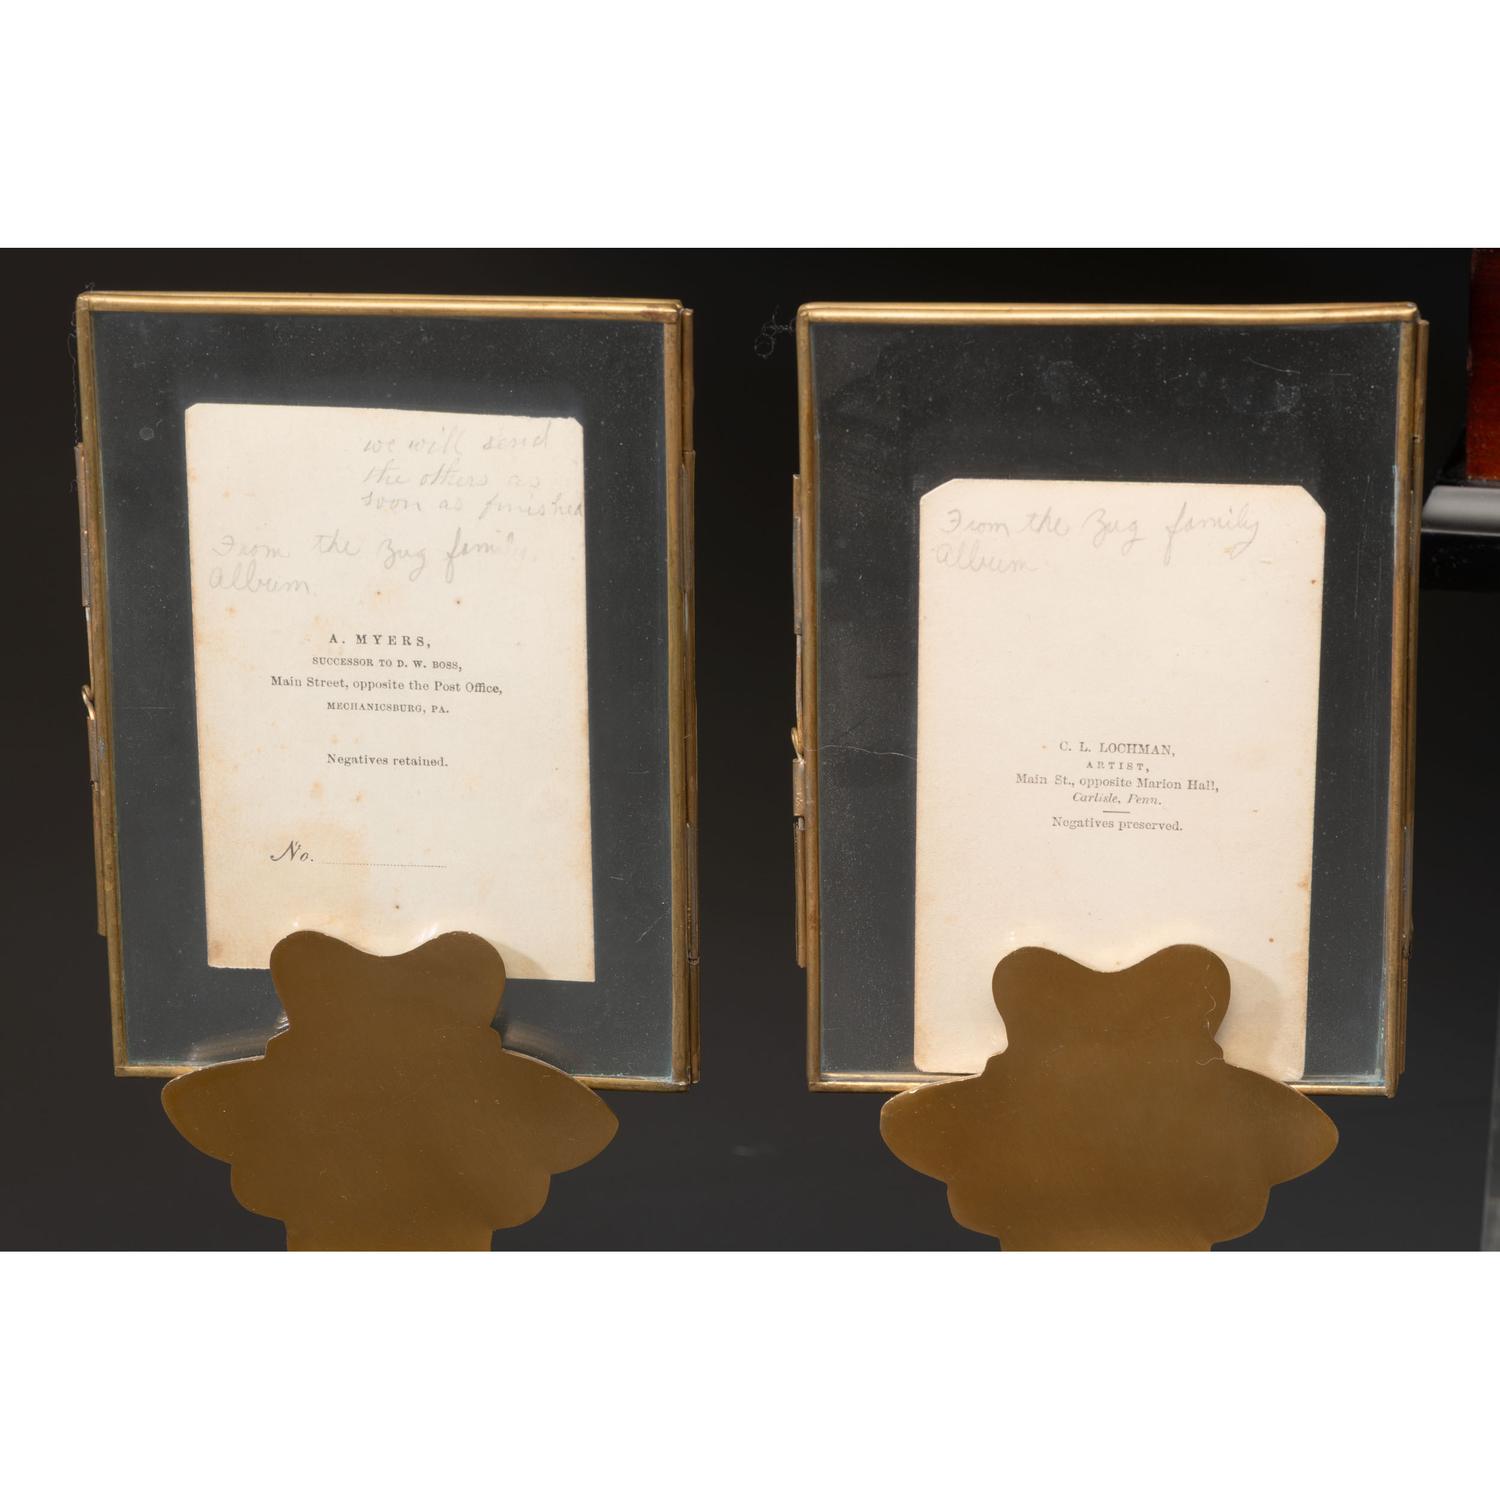 we will send
the others as
soon as finished
From the Zug family
Album.
A. MYERS,
SUCCESSOR TO D. W. BOSS,
Main Street, opposite the Post Office,
MECHANICSBURG, PA.
Negatives retained.
No.
From the Zug family
Album
C. L. LOCHMAN,
ARTIST,
Main St., opposite Marion Hall,
Carlisle, Penn.
Negatives preserved.